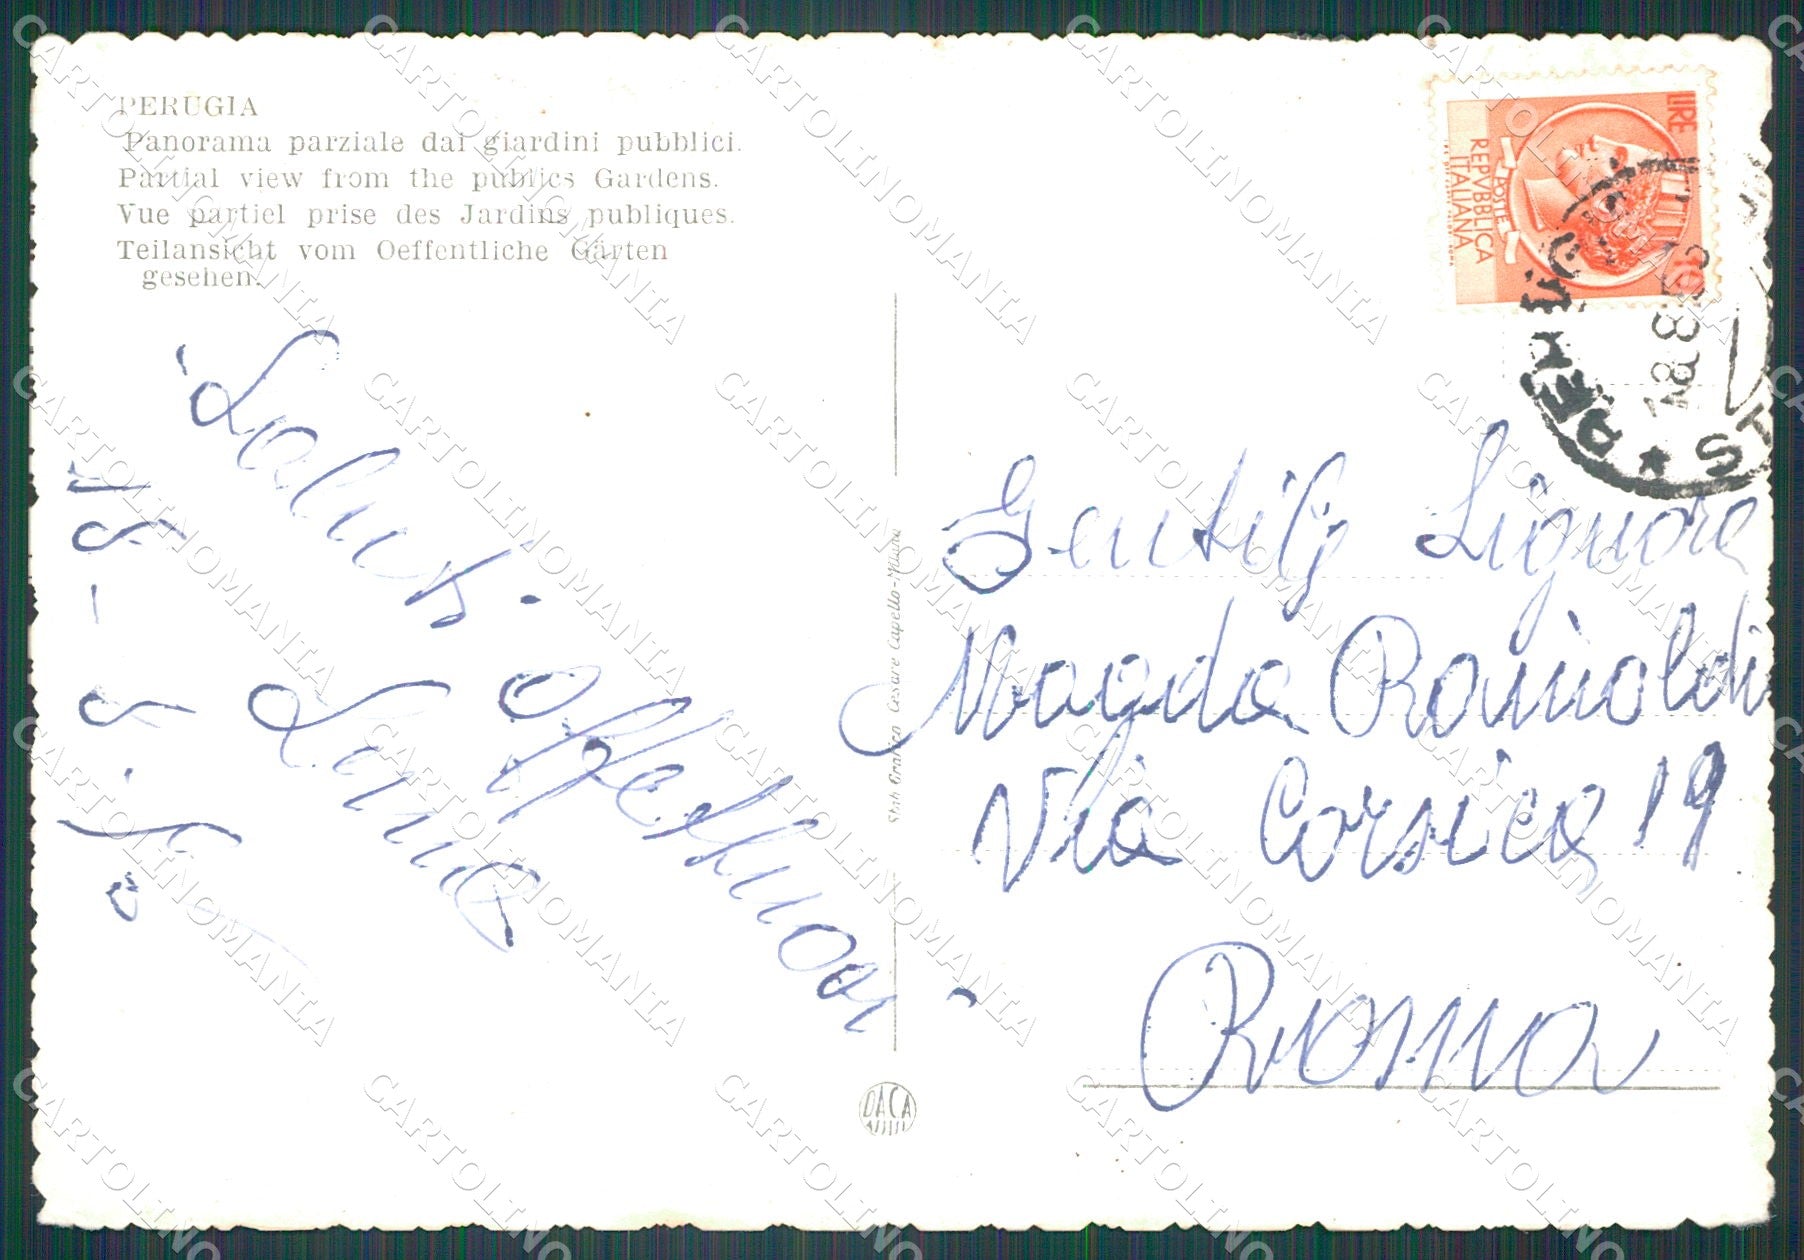 PERUGIA
Panorama parziale dai giardini pubblici.
Partial view from the publics Gardens.
Vue partiel prise des Jardins publiques.
Teilansicht vom Oeffentliche Gärten
gesehen.
LIRE
10
POSTE
REPVBBLICA
ITALIANA
PERUGIA
18.8.53
Saluti
affettuosi
Gentile Signora
Magda Romualdi
Via Corsica 19
Roma
Stab Grafico Cesare Capello - Milano
DACA
CARTOLINOMANIA